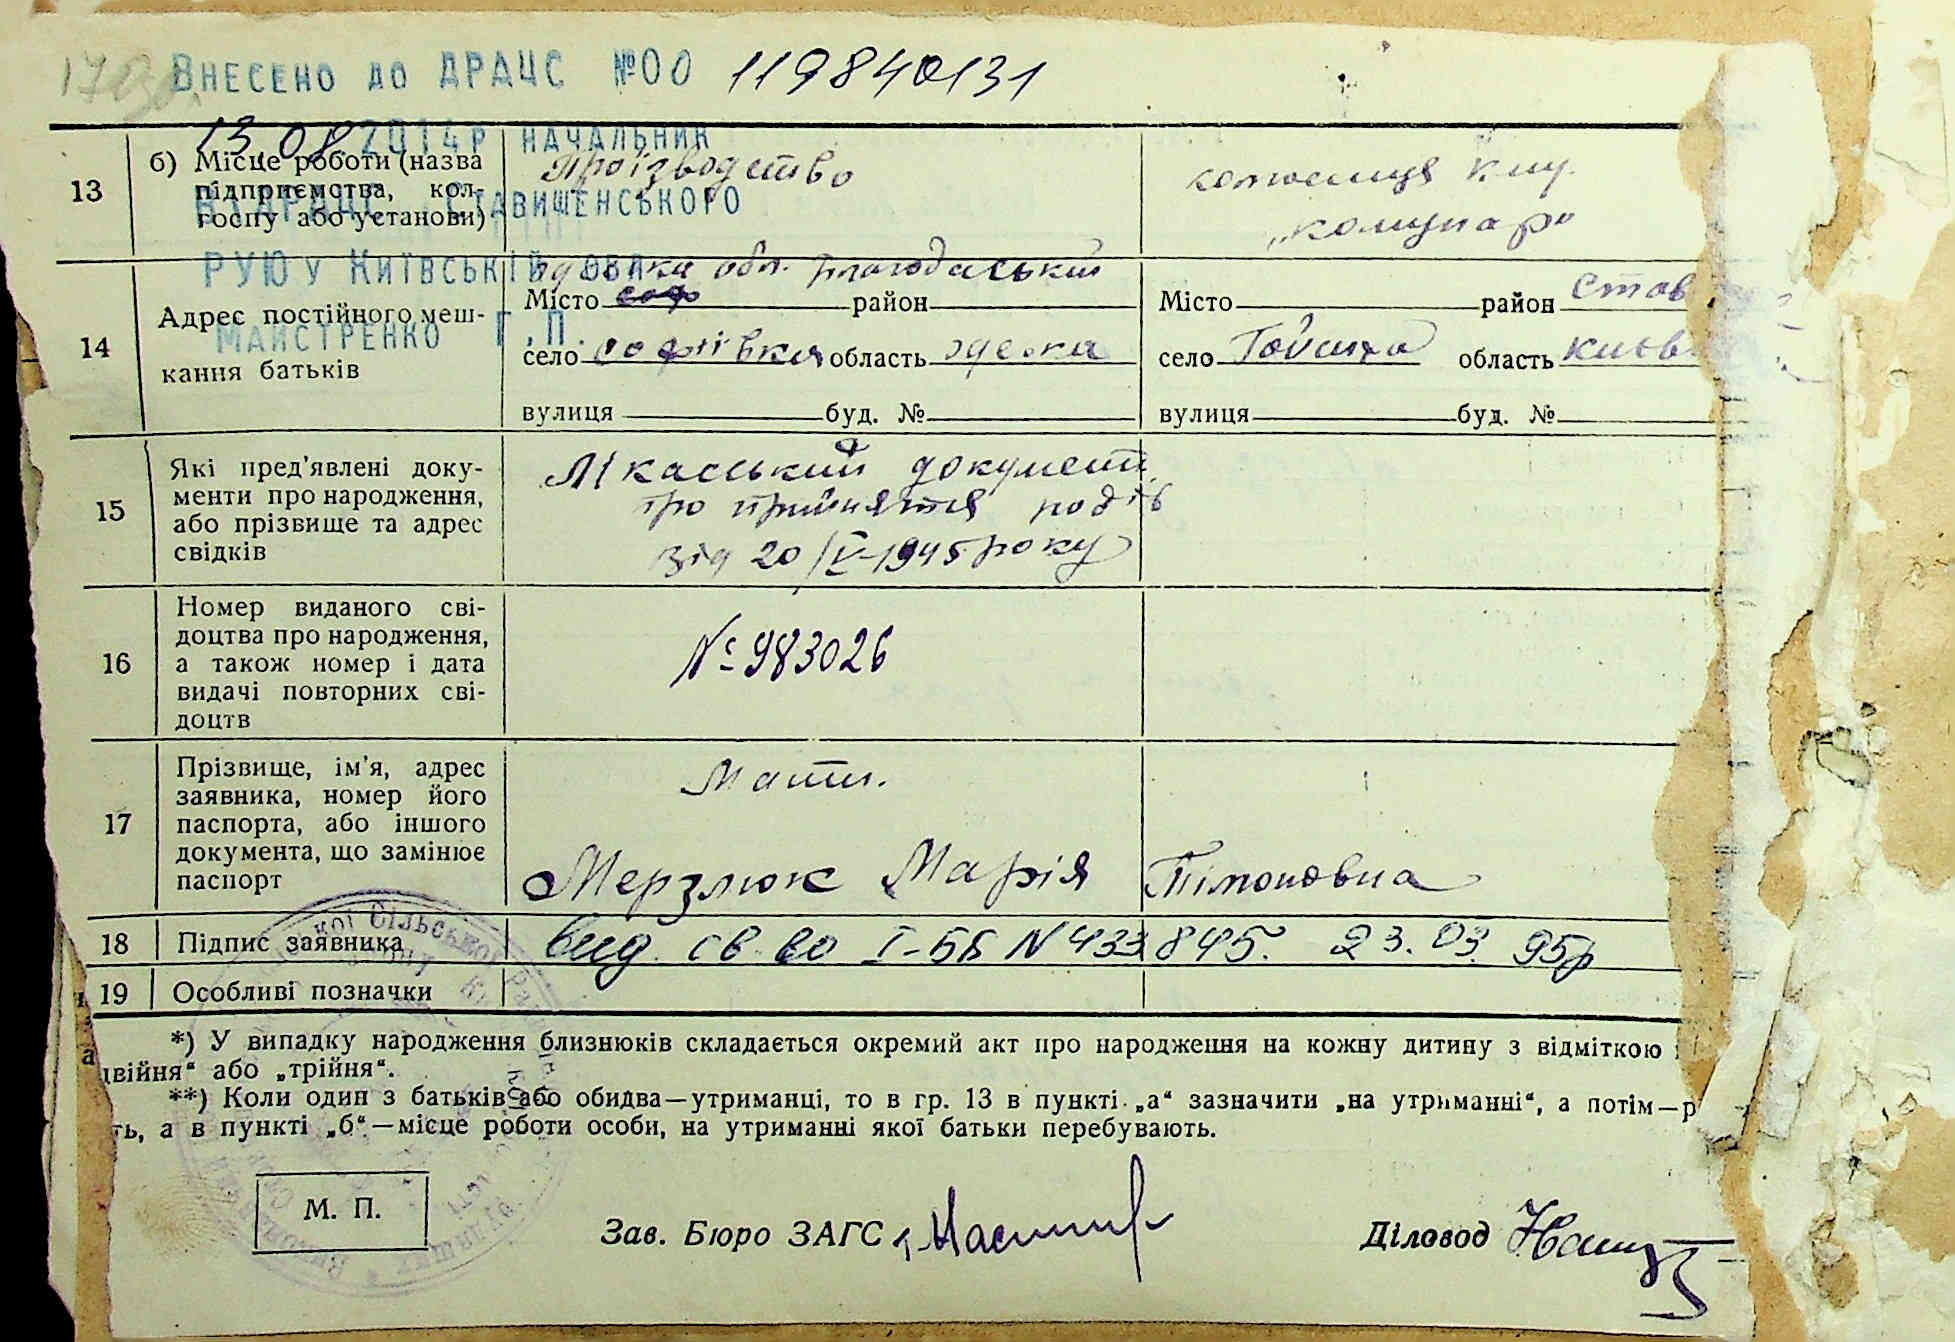 ВНЕСЕНО ДО ДРАЦС №00 119840131
13.08 2014р НАЧАЛЬНИК
СТАВИЩЕНСЬКОГО
РУЮ У КИЇВСЬКІЙ ОБЛ
МАЙСТРЕНКО Г.П.
13
б) Місце роботи (назва
підприємства, кол-
госпу або установи)
Проізводство
колгоспу
„комунар"
14
Адрес постійного меш-
кання батьків
обл.
Місто район
село Софіївка область одеська
вулиця буд. №
Місто район Став
село область київ
вулиця буд. №
15
Які пред'явлені доку-
менти про народження,
або прізвище та адрес
свідків
Лікарський документ
про прийняття родів
від 20/V-1945 року
16
Номер виданого сві-
доцтва про народження,
а також номер і дата
видачі повторних сві-
доцтв
№ 983026
17
Прізвище, ім'я, адрес
заявника, номер його
паспорта, або іншого
документа, що замінює
паспорт
Мати.
Мерзлюк Марія Тімоновна
18
Підпис заявника
Вид. св-во I-БК N 433845. 23.03.95р
19
Особливі позначки
*) У випадку народження близнюків складається окремий акт про народження на кожну дитину з відміткою
двійня" або „трійня".
**) Коли один з батьків або обидва—утриманці, то в гр. 13 в пункті „а" зазначити „на утриманні", а потім—р
ть, а в пункті „б"—місце роботи особи, на утриманні якої батьки перебувають.
М. П.
Зав. Бюро ЗАГС
Діловод